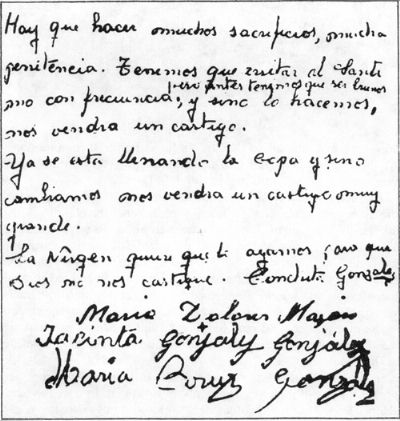 Hay que hacer muchos sacrificios, mucha
penitencia. Tenemos que visitar al Santi
simo con frecuencia; pero antes tenemos que ser buenos
y sino lo hacemos,
nos vendra un castigo.
Ya se esta llenando la copa y sino
cambiamos nos vendra un castigo muy
grande.
La Virgen quiere que lo agamos para que
Dios no nos castigue. Conchita González
Maria Dolores Mazón
Jacinta González González
Maria Cruz González